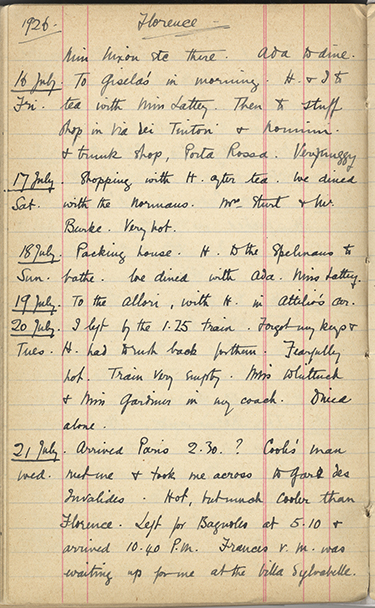 1926. Florence
Miss Nixon etc there. Ada to dine.
16 July. To Gisela's in morning. H. & I to
Fri. tea with Miss Lattey. Then to stuff
shop in Via dei Tintori &
& trunk shop, Porta Rossa. Very muggy
17 July. Shopping with H. after tea. We dined
Sat. with the Normans. Mrs Sturt & Mr.
Burke. Very hot.
18 July. Packing house. H. to the Spelmans to
Sun. bathe. We dined with Ada. Miss Lattey.
19 July. To the Allori, with H. in Attilio's car.
20 July. I left by the 1.25 train. Forgot my keys &
Tues. H. had to rush back for them. Fearfully
hot. Train very empty. Miss Whittuck
& Miss Gardner in my coach. Dined
alone.
21 July. Arrived Paris 2.30.? Cook's man
Wed. met me & took me across to Gare des
Invalides. Hot, but much cooler than
Florence. Left for Bagnoles at 5.10 &
arrived 10.40 P.M. Frances v. M. was
waiting up for me at the Villa Sylvabelle.